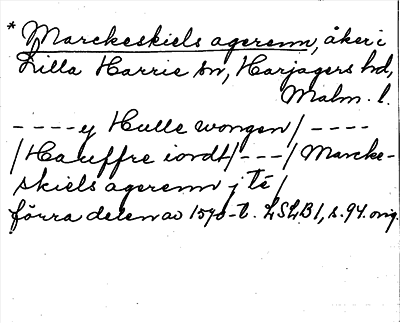 * Marckeskiels agerenn, åker i
Lilla Harrie sn, Harjagers hd,
Malm. l.
----y Hulle wongen/ ----
/Hauffre iordt/---/ Marcke-
skiels agerenn j té/
förra delen av 1570-t. LSLB1, s. 94. orig.